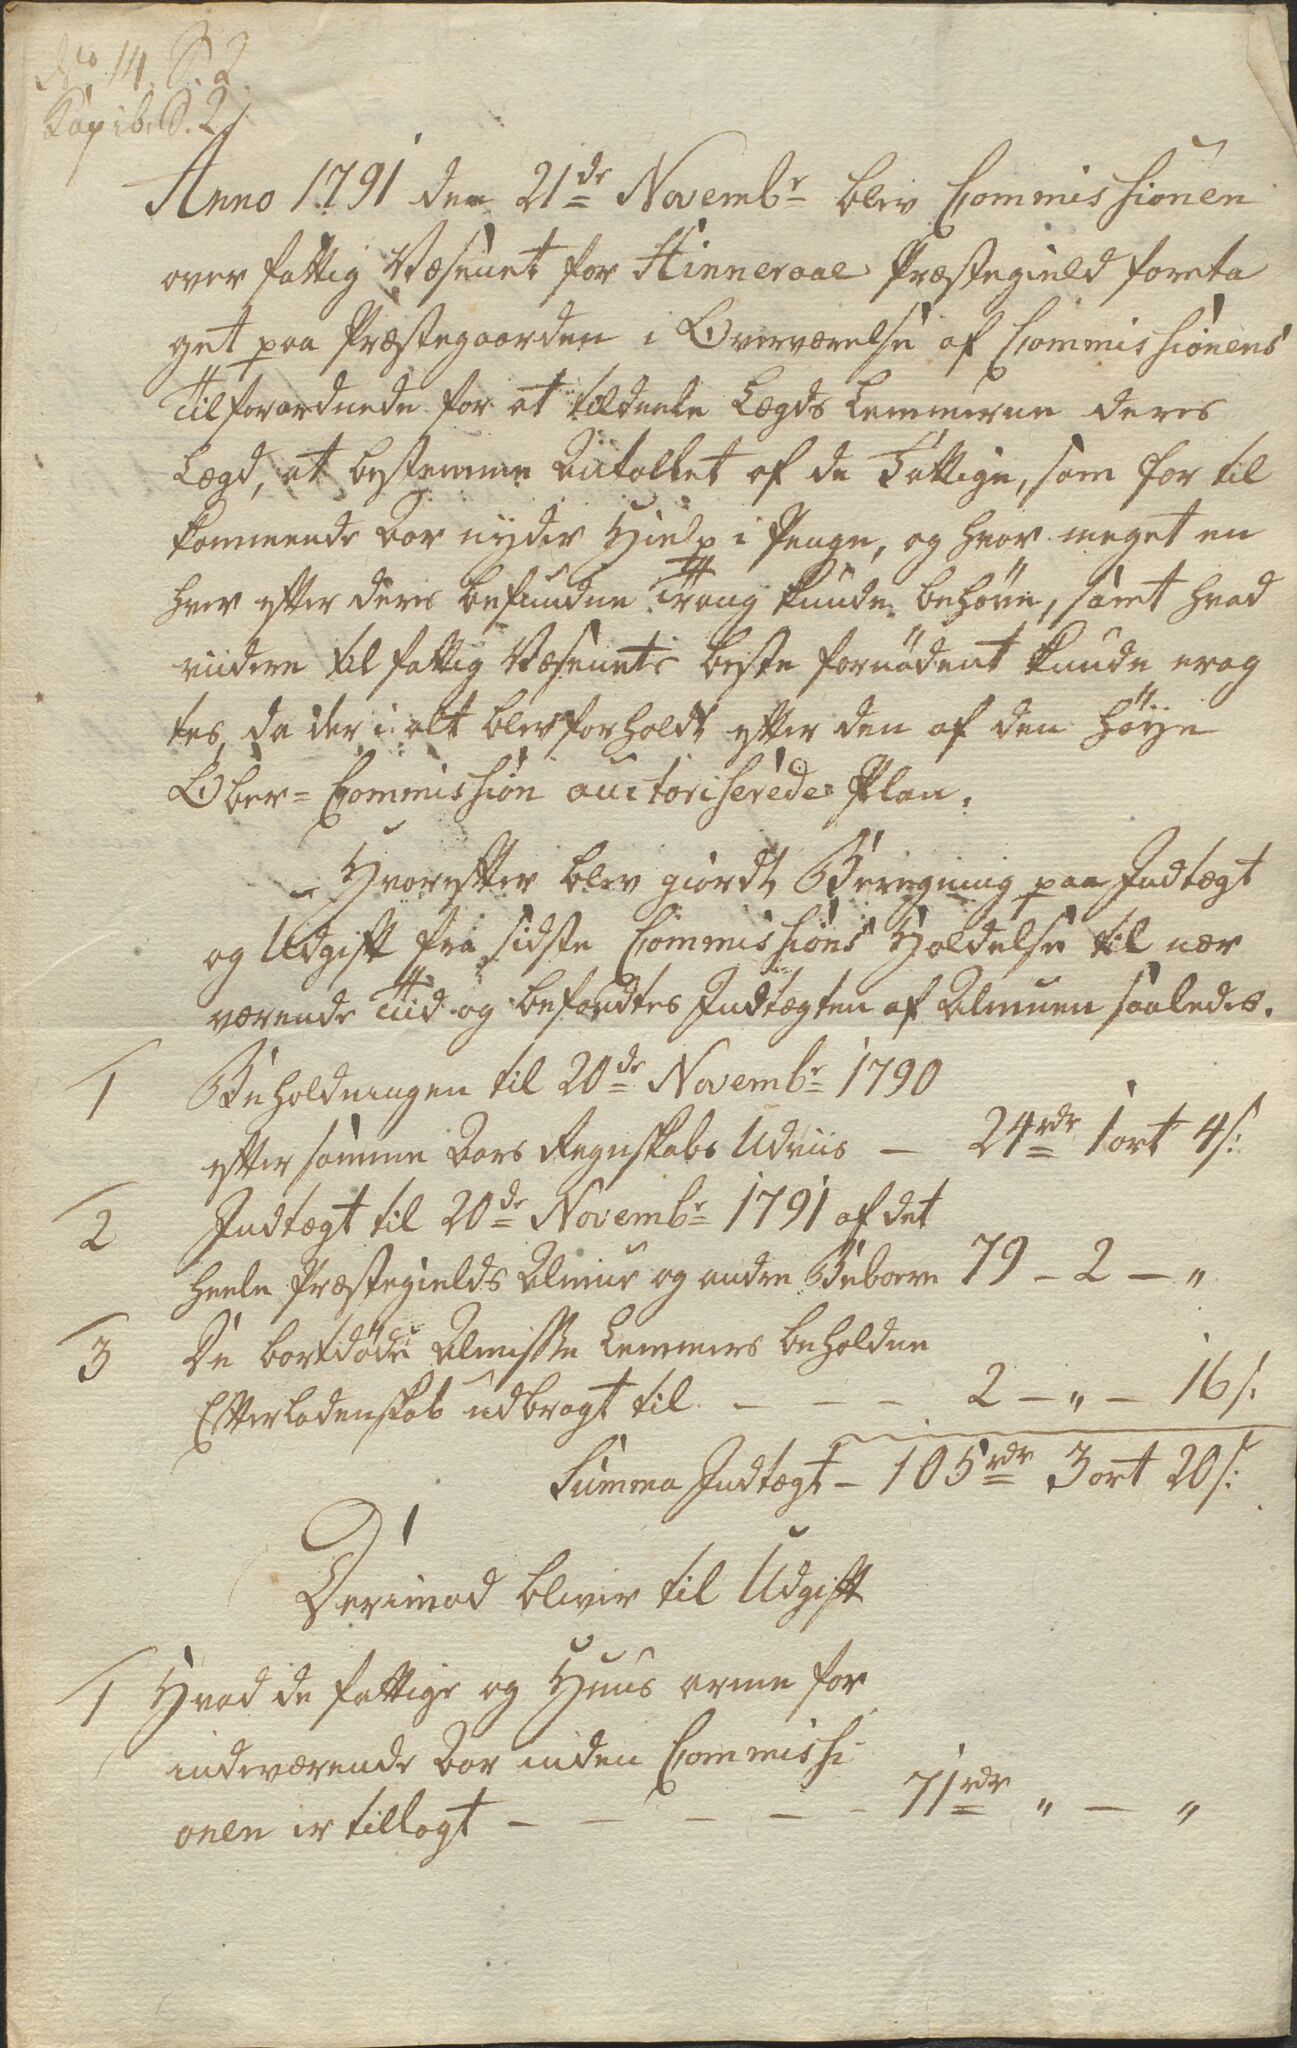 No 14. S. 2
Kap ib. S. 2
Anno 1791 den 21de Novembr blev Commissionen
over fattig Væsenet for Hinneraae Præstegield foreta
get paa Præstegaarden i Overværelse af Commissionens
Tilforordnede for at tildeele Lægds Lemmerne deres
Lægd, at bestemme Antallet af de Fattige, som for til
kommende Aar nyder Hielp i Penge, og hvor meget en
hver efter deres befundne Trang kunde behøve, samt hvad
viidere til fattig Væsenets beste fornødent kunde erag
tes, da der i alt blev forholdt efter den af den høye
Ober=Commission auctoriserede Plan.
Hvorefter blev giordt Beregning paa Indtægt
og Udgift fra sidste Commissions Holdelse til nær
værende Tiid og befandtes Indtægten af Almuen saaledes.
1 Beholdningen til 20de Novembr 1790
efter samme Aars Regnskabs Udviis – 24rdr 1 ort 4 s:
2 Indtægt til 20de Novembr 1791 af det
heele Præstegields Almue og andre Beboere 79 – 2 – "
3 De bortdøde Almisse Lemmers beholdne
Efterladenskab udbragt til – – – 2 – " – 16 s:
Summa Indtægt – 105rdr 3 ort 20 s:
Derimod bliver til Udgift
1 Hvad de fattige og Huus arme for
indeværende Aar inden Commissi
onen er tillagt – – – – – 71rdr " – "